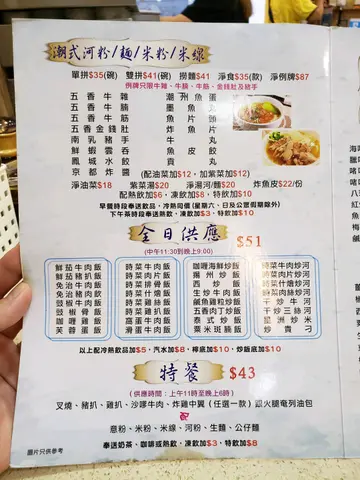 潮式河粉/麵/米粉/米線
單拼$35(碗) 雙拼$41(碗) 撈麵$41 淨食$35(款) 淨例牌$87
例牌只限牛雜、牛腩、牛筋、金錢肚及豬手
五香牛雜 潮州魚蛋
五香牛腩 墨魚丸
五香牛筋 魚片頭
五香金錢肚 炸魚片
南乳豬手 牛丸
鮮蝦雲吞 魚皮餃
鳳城水餃 貢丸
京都炸醬 (配油菜加$12，加紫菜加$12)
淨油菜$18 紫菜湯$20 淨湯河/麵$20 炸魚皮$22/份
配熱飲加$6，凍飲加$8，特飲加$10
早餐時段奉送熱飲、冷熱同價 (星期六、日及公眾假期除外)
下午茶時段奉送熱飲、凍飲加$3、特飲加$10
全日供應 $51
(中午11:30到晚上9:00)
鮮茄牛肉飯 時菜牛肉飯 咖喱海鮮炒飯 時菜牛肉炒河
鮮茄豬扒飯 時菜肉片飯 揚州炒飯 時菜肉片炒河
免治牛肉飯 時菜排骨飯 西炒飯 時菜什燴炒河
免治豬肉飯 時菜什燴飯 生炒牛肉飯 時菜肉絲炒河
豉椒牛肉飯 時菜雞飯 鹹魚雞粒炒飯 干炒牛河
豉椒排骨飯 咖喱牛肉飯 五香肉丁炒飯 干炒三絲河
咖喱雞飯 窩蛋牛肉飯 泰式炒飯 星洲炒米
芙蓉蛋飯 滑蛋牛肉飯 粟米斑腩飯 炒貴刁
以上配冷熱飲品加$5，汽水加$8，檸底加$10，炒飯底加$10
特餐 $43
(供應時間：上午11時至晚上6時)
叉燒、豬扒、雞扒、沙嗲牛肉、炸雞中翼 (任選一款) 跟火腿奄列油包
配
意粉、米粉、米線、河粉、生麵、公仔麵
奉送奶茶、咖啡或熱飲，凍飲加$3，特飲加$8
圖片只供參考